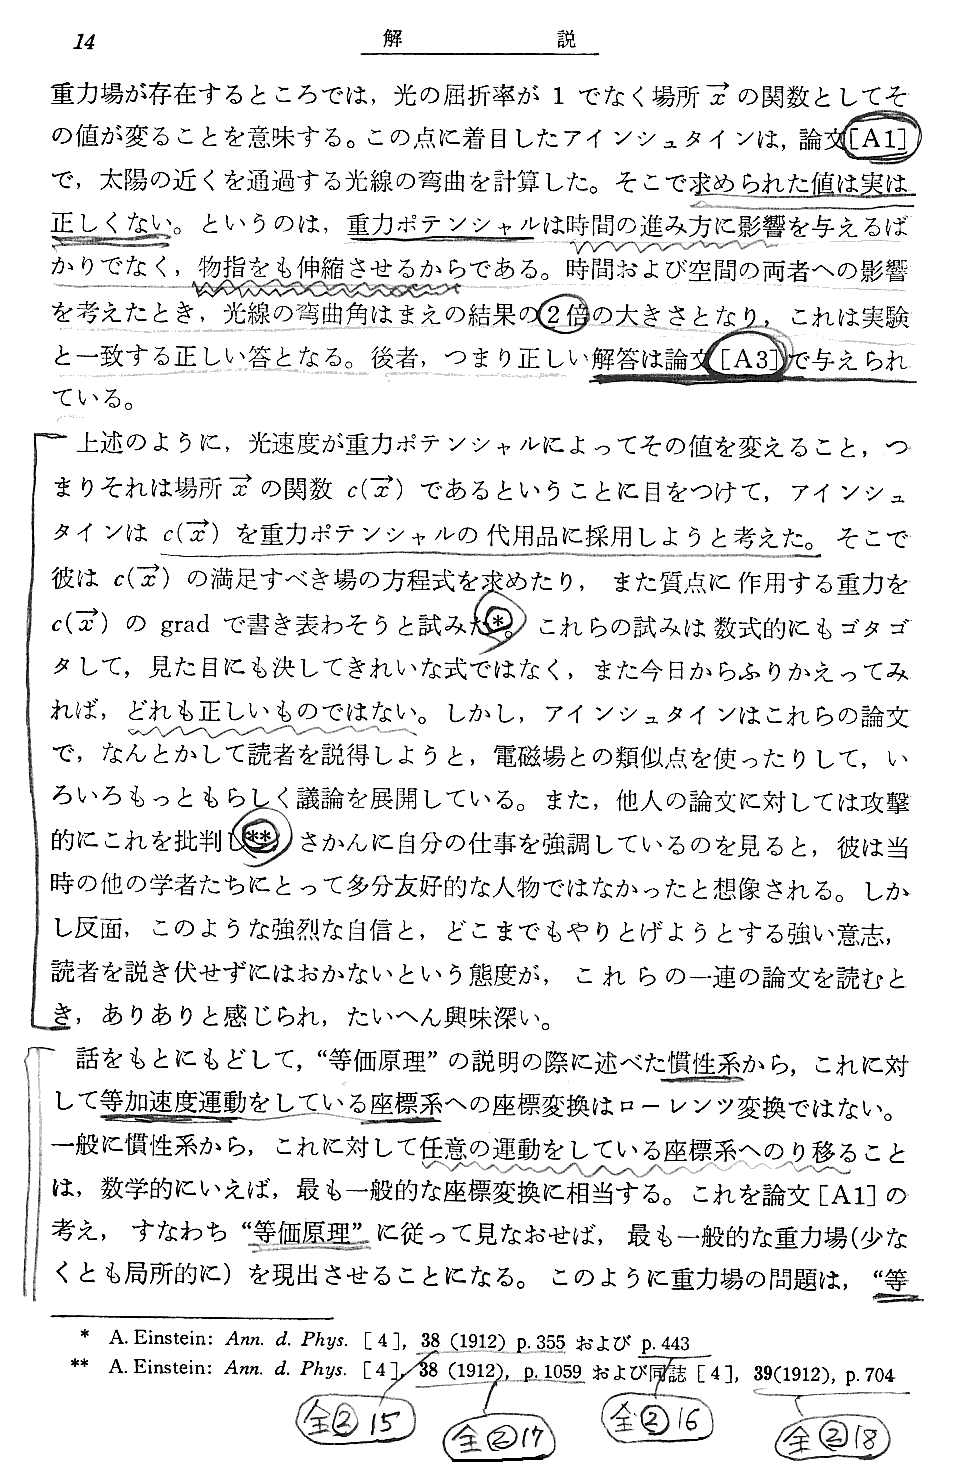 14
解説
重力場が存在するところでは，光の屈折率が 1 でなく場所 x⃗ の関数としてそ
の値が変ることを意味する。この点に着目したアインシュタインは，論文[A1]
で，太陽の近くを通過する光線の弯曲を計算した。そこで求められた値は実は
正しくない。というのは，重力ポテンシャルは時間の進み方に影響を与えるば
かりでなく，物指をも伸縮させるからである。時間および空間の両者への影響
を考えたとき，光線の弯曲角はまえの結果の2倍の大きさとなり，これは実験
と一致する正しい答となる。後者，つまり正しい解答は論文[A3]で与えられ
ている。
上述のように，光速度が重力ポテンシャルによってその値を変えること，つ
まりそれは場所 x⃗ の関数 c(x⃗) であるということに目をつけて，アインシュ
タインは c(x⃗) を重力ポテンシャルの代用品に採用しようと考えた。そこで
彼は c(x⃗) の満足すべき場の方程式を求めたり， また質点に作用する重力を
c(x⃗) の grad で書き表わそうと試みた*。これらの試みは数式的にもゴタゴ
タして，見た目にも決してきれいな式ではなく，また今日からふりかえってみ
れば，どれも正しいものではない。しかし，アインシュタインはこれらの論文
で，なんとかして読者を説得しようと，電磁場との類似点を使ったりして，い
ろいろもっともらしく議論を展開している。また，他人の論文に対しては攻撃
的にこれを批判し**，さかんに自分の仕事を強調しているのを見ると，彼は当
時の他の学者たちにとって多分友好的な人物ではなかったと想像される。しか
し反面，このような強烈な自信と，どこまでもやりとげようとする強い意志，
読者を説き伏せずにはおかないという態度が，これらの一連の論文を読むと
き，ありありと感じられ，たいへん興味深い。
話をもとにもどして，“等価原理” の説明の際に述べた慣性系から，これに対
して等加速度運動をしている座標系への座標変換はローレンツ変換ではない。
一般に慣性系から，これに対して任意の運動をしている座標系へのり移ること
は，数学的にいえば，最も一般的な座標変換に相当する。これを論文[A1]の
考え， すなわち “等価原理” に従って見なおせば， 最も一般的な重力場(少な
くとも局所的に) を現出させることになる。このように重力場の問題は，“等
* A. Einstein: Ann. d. Phys. [4], 38 (1912) p. 355 および p. 443
** A. Einstein: Ann. d. Phys. [4], 38 (1912), p. 1059 および同誌 [4], 39(1912), p. 704
全②15 全②17 全②16 全②18